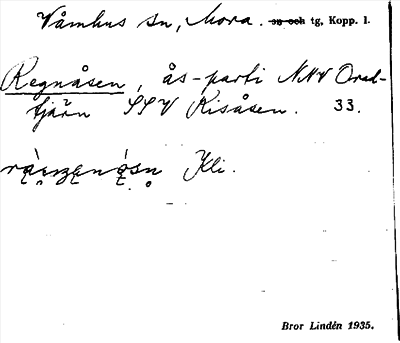 Våmhus sn, Mora. sn och tg, Kopp. l.
Regnåsen, ås-parti NNV Orad-
tjärn SSV Risåsen. 33.
Kli.
Bror Lindén 1935.